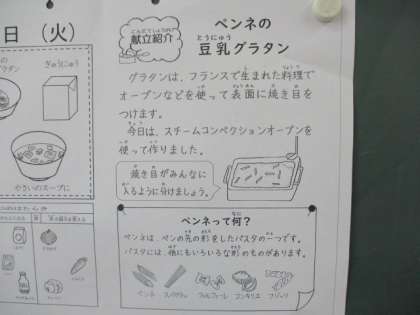 日（火）
グラタン
ぎゅうにゅう
やさいのスープに
こんだてしょうかい
献立紹介
ペンネの
とうにゅう
豆乳グラタン
グラタンは、フランスで生まれた料理で
オーブンなどを使って表面に焼き目を
つけます。
今日は、スチームコンベクションオーブンを
使って作りました。
焼き目がみんなに
入るように分けましょう。
ペンネって何？
ペンネは、ペンの先の形をしたパスタの一つです。
パスタには、他にもいろいろな形のものがあります。
ペンネ
スパゲティ
ファルファーレ
コンキリエ
フジッリ